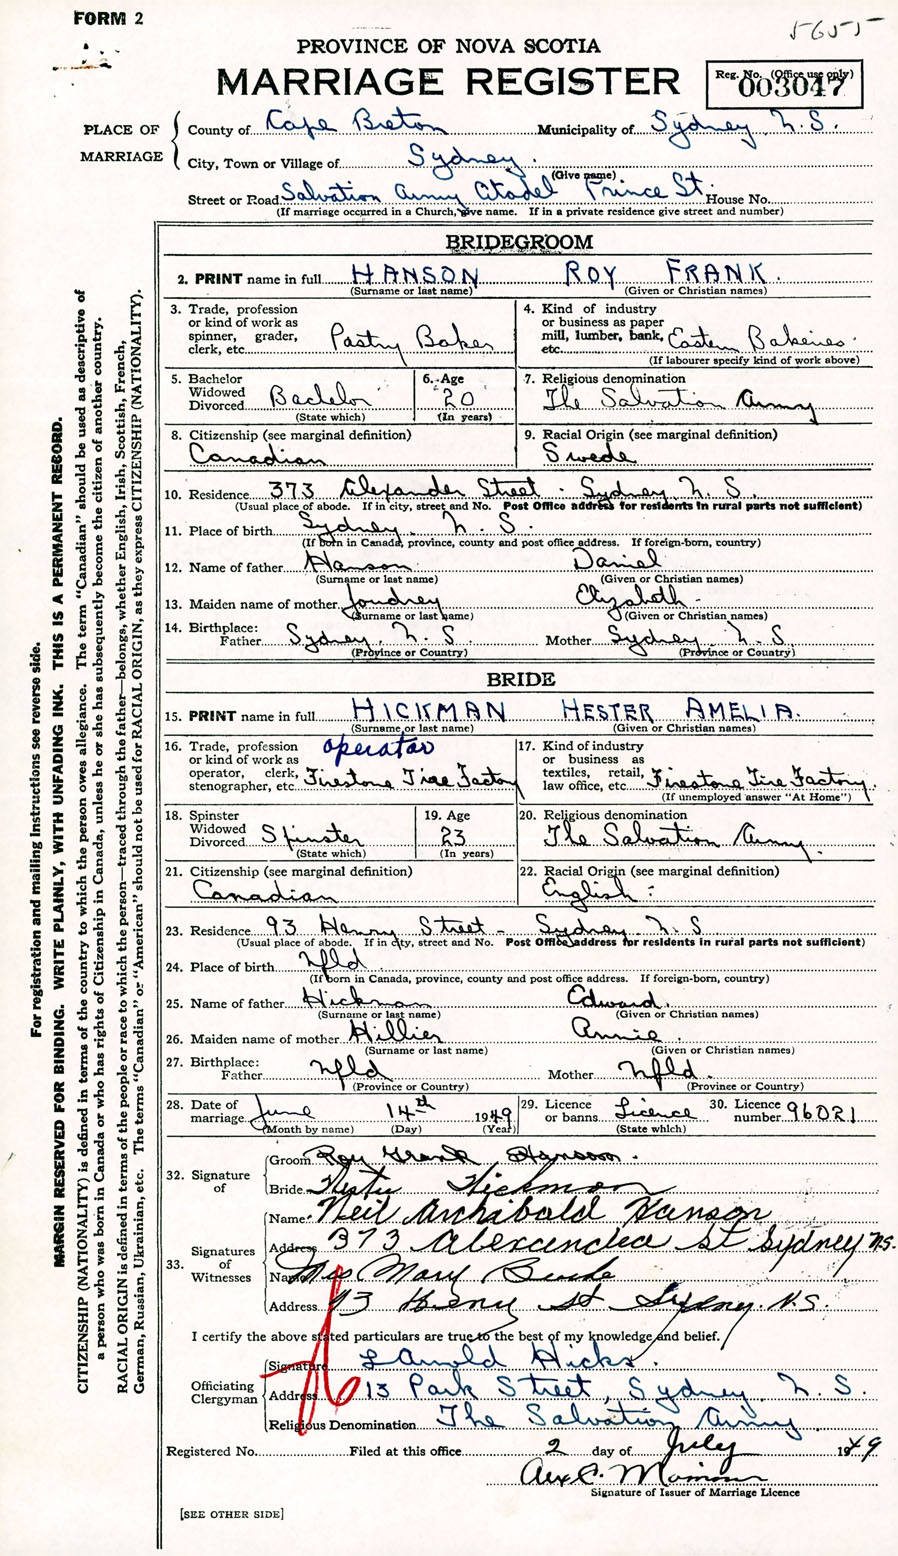 FORM 2
5655
PROVINCE OF NOVA SCOTIA
MARRIAGE REGISTER
Reg. No. (Office use only)
003047
PLACE OF MARRIAGE
County of Cape Breton Municipality of Sydney, N.S.
City, Town or Village of Sydney.
(Give name)
Street or Road Salvation Army Citadel Prince St. House No.
(If marriage occurred in a Church, give name. If in a private residence give street and number)
BRIDEGROOM
2. PRINT name in full HANSON ROY FRANK.
(Surname or last name) (Given or Christian names)
3. Trade, profession or kind of work as spinner, grader, clerk, etc. Pastry Baker
4. Kind of industry or business as paper mill, lumber, bank, etc. Eastern Bakeries
(If labourer specify kind of work above)
5. Bachelor Widowed Divorced Bachelor
(State which)
6. Age 20
(In years)
7. Religious denomination
The Salvation Army
8. Citizenship (see marginal definition)
Canadian
9. Racial Origin (see marginal definition)
Swede
10. Residence 373 Alexander Street - Sydney, N.S.
(Usual place of abode. If in city, street and No. Post Office address for residents in rural parts not sufficient)
11. Place of birth Sydney, N.S.
(If born in Canada, province, county and post office address. If foreign-born, country)
12. Name of father Hanson Daniel
(Surname or last name) (Given or Christian names)
13. Maiden name of mother Joudrey Elizabeth
(Surname or last name) (Given or Christian names)
14. Birthplace:
Father Sydney, N.S. Mother Sydney, N.S
(Province or Country) (Province or Country)
BRIDE
15. PRINT name in full HICKMAN HESTER AMELIA.
(Surname or last name) (Given or Christian names)
16. Trade, profession or kind of work as operator, clerk, stenographer, etc. operator Firestone Tire Factory
17. Kind of industry or business as textiles, retail, law office, etc. Firestone Tire Factory
(If unemployed answer "At Home")
18. Spinster Widowed Divorced Spinster
(State which)
19. Age 23
(In years)
20. Religious denomination
The Salvation Army.
21. Citizenship (see marginal definition)
Canadian
22. Racial Origin (see marginal definition)
English
23. Residence 93 Henry Street - Sydney, N.S
(Usual place of abode. If in city, street and No. Post Office address for residents in rural parts not sufficient)
24. Place of birth Nfld
(If born in Canada, province, county and post office address. If foreign-born, country)
25. Name of father Hickman Edward.
(Surname or last name) (Given or Christian names)
26. Maiden name of mother Hillier Annie.
(Surname or last name) (Given or Christian names)
27. Birthplace:
Father Nfld Mother Nfld.
(Province or Country) (Province or Country)
28. Date of marriage June 14th 1949
(Month by name) (Day) (Year)
29. Licence or banns. Licence
(State which)
30. Licence number. 96021
32. Signature of
Groom Roy Frank Hanson.
Bride Hester Hickman
33. Signatures of Witnesses
Name Neil Archibald Hanson
Address 373 Alexandea St Sydney N.S.
Name Mrs Mary
Address 93 Henry St Sydney. N.S.
I certify the above stated particulars are true to the best of my knowledge and belief.
Officiating Clergyman
Signature L Arnold Hicks.
Address 13 Park Street, Sydney, N.S.
Religious Denomination The Salvation Army
Registered No. Filed at this office 2 day of July 1949
Signature of Issuer of Marriage Licence
[SEE OTHER SIDE]
For registration and mailing Instructions see reverse side.
MARGIN RESERVED FOR BINDING. WRITE PLAINLY, WITH UNFADING INK. THIS IS A PERMANENT RECORD.
CITIZENSHIP (NATIONALITY) is defined in terms of the country to which the person owes allegiance. The term "Canadian" should be used as descriptive of
a person who was born in Canada or who has rights of Citizenship in Canada, unless he or she has subsequently become the citizen of another country.
RACIAL ORIGIN is defined in terms of the people or race to which the person—traced through the father—belongs, whether English, Irish, Scottish, French,
German, Russian, Ukrainian, etc. The terms "Canadian" or "American" should not be used for RACIAL ORIGIN, as they express CITIZENSHIP (NATIONALITY).